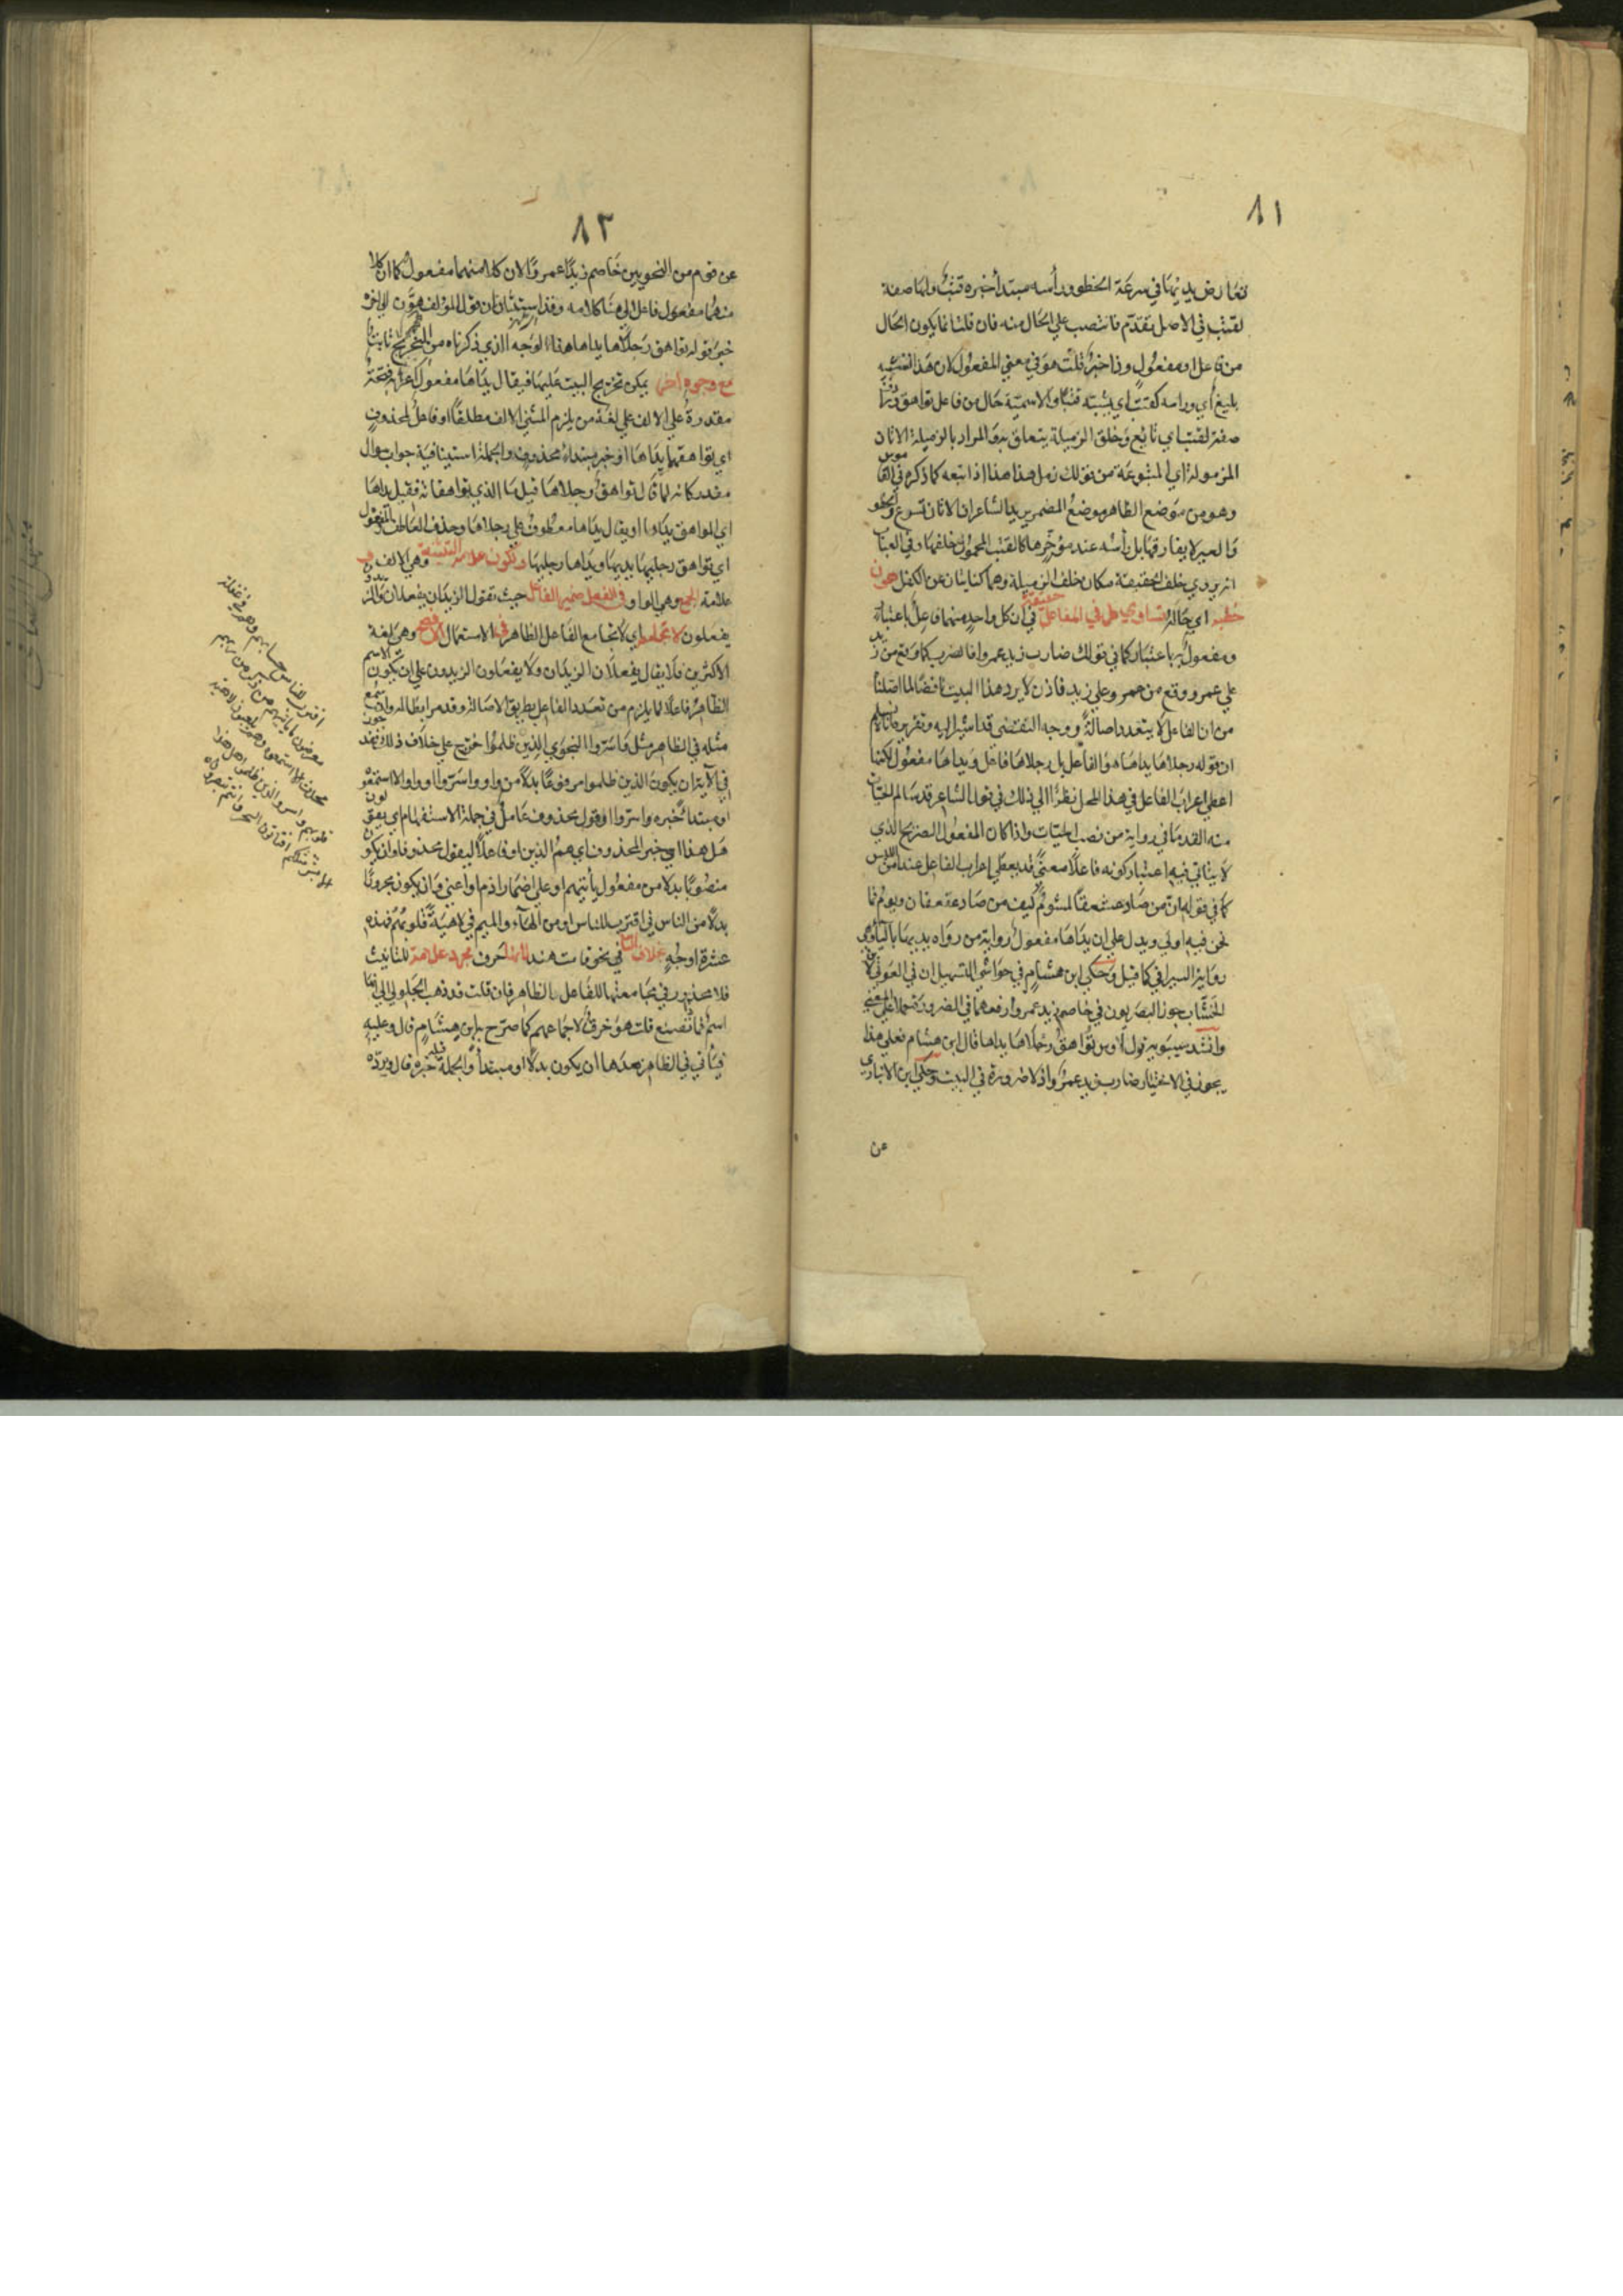 ٨١
تعارض يديها في سرعة الخطو ورأسه مبتدأ خبره قتب ولها صفة
لقتب في الاصل تقدم فانتصب علي الحال منه فان قلت انما يكون الحال
من فاعل او مفعول وذا خبر قلت هو في معني المفعول لان هذا تشبيه
بليغ أي وراسه كقتب أي يشبه قتبا والاسمية حال من فاعل تواهق
صفة لقتب اي تابع وخلق الزميلة يتعلق به والمراد بالزميلة الاتان
المزمولة اي المتبوعة من قولك زمل هذا هذا اذا اتبعه كما ذكره في القاموس
وهو من موضع الظاهر موضع المضمر يريد الشاعر ان الاتان تسرع
والعير لا يفارقها بل رأسه عند مؤخرها كالقتب المحمول خلفها وفي العباب
انه يروي خلف الحقيبة مكان خلف الزميلة وهما كنايتان عن الكفل
اي حالة تساوي طرفي المفاعل حقيقة في ان كل واحد منهما فاعل باعتبار
ومفعول به باعتبار كما في قولك ضارب زيد عمروا فالضرب كما وقع من زيد
علي عمرو وقع من عمرو علي زيد فاذن لا يرد هذا البيت ناقضا لما اصلنا
من ان الفاعل لا يتعدد اصالة ووجه التفصي قد اشير اليه وتقريره
ان قوله رجلاها يداها هو الفاعل بل رجلاها فاعل ويداها مفعول لكنها
اعطي اعراب الفاعل في هذا المحل نظرا الي ذلك في قول الشاعر قد سالم الحيات
منه القدما في رواية من نصب الحيات واذا كان المفعول الصريح الذي
لا يتأتي فيه اعتبار كونه فاعلا معني قد يعطي اعراب الفاعل عند امن اللبس
كما في قوله ان من صاد عقعقا لمشوم كيف من صاد عقعقان وبوم فما
نحن فيه اولي ويدل علي ان يداها مفعول رواية من رواه يديها بالياء وهي
رواية السيرافي كما قيل وحكي ابن هشام في حواشي التسهيل ان في العوفي لابن
الخشاب جوز البصريون في خاصم زيد عمروا رفعهما في الضرورة حملا علي المعني
وانشد سيبويه قول اوس تواهق رجلاها يداها قال ابن هشام فعلي هذا
يجوز في الاختيار ضارب زيد عمرو اذ لا ضرورة في البيت وحكي ابن الانباري
عن
٨٢
عن قوم من النحويين خاصم زيدا عمروا لان كلا منهما مفعول كما ان كلا
منهما مفعول فاعل الي هنا كلامه وقد استبان ان قول المؤلف
قوله تواهق رجلاها يداها هذا الوجه الذي ذكرناه من التخريج ثابتا
مع وجوه اخر يمكن تخريج البيت عليها فيقال يداها مفعول اعرابه فتحة
مقدرة علي الالف علي لغة من يلزم المثني الالف مطلقا او فاعل لمحذوف
اي تواهقها يداها او خبر مبتداء محذوف والجملة استينافية جواب سوال
مقدر كانه لما قال تواهق رجلاها قيل ما الذي تواهقانه فقيل يداها
اي المواهق يداها او يقال يداها معطوف علي رجلاها وحذف العاطف
اي تواهق رجليها يديها ويداها رجليها وتكون علامة التثنية وهي الالف
علامة الجمع وهي الواو في الفعل ضمير الفاعل حيث تقول الزيدان يفعلان والزيدون
يفعلون لا تجامعه اي لا تجامع الفاعل الظاهر في الاستعمال الافصح وهي لغة
الاكثرين فلا يقال يفعلان الزيدان ولا يفعلون الزيدون علي ان يكون الاسم
الظاهر فاعلا لما يلزم من تعدد الفاعل بطريق الاصالة وقد مر ابطاله
مثله في الظاهر مثل واسروا النجوي الذين ظلموا خرج علي خلاف ذلك
في الآية ان يكون الذين ظلموا مرفوعا بدلا من واو واسروا او واو استمعوه
او مبتدأ خبره واسروا او قول محذوف عامل في جملة الاستفهام اي يقولون
هل هذا اي خبر المحذوف اي هم الذين او فاعلا ليقول محذوفا وان يكون
منصوبا بدلا من مفعول يأتيهم او علي اضمار اذم او اعني وان يكون مجرورا
بدلا من الناس في اقترب للناس او من الهاء والميم في لاهية قلوبهم فهذه
عشرة اوجه بخلاف التا في نحو قامت هند فانها حرف مجرد علامة للتانيث
فلا محذور في مجامعتها للفاعل الظاهر فان قلت قد ذهب الجلولي الي انها
اسم فما تصنع قلت هو خرق لاجماعهم كما صرح به ابن هشام قال وعليه
فيأتي في الظاهر بعدها ان يكون بدلا او مبتدأ والجملة قبله خبره قال ويرده
اقترب للناس حسابهم وهم في غفلة
معرضون ما ياتيهم من ذكر من ربهم
محدث الا استمعوه وهم يلعبون لاهية
قلوبهم واسروا النجوي الذين ظلموا هل هذا
الا بشر مثلكم افتاتون السحر وانتم تبصرون